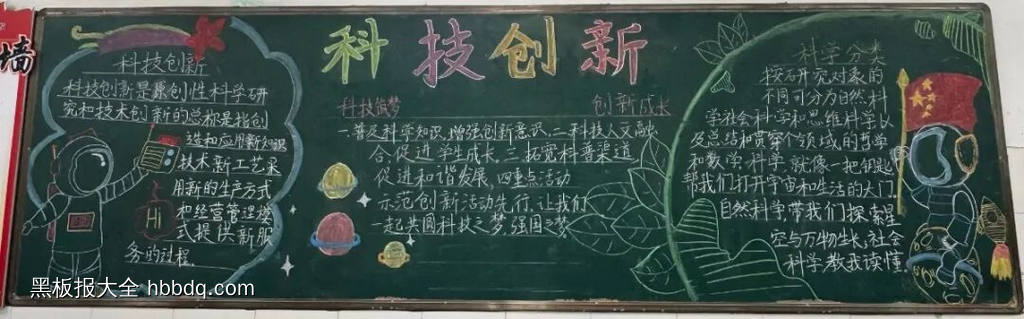 墙
科技创新
科技创新
科技创新是原创性科学研
究和技术创新的总称是指创
造和应用新知识
技术新工艺采
用新的生产方式
和经营管理模
式提供新服
务的过程.
Hi
科技筑梦
创新成长
一.普及科学知识,增强创新意识.二.科技人文融
合,促进学生成长.三.拓宽科普渠道
促进和谐发展,四重点活动
示范创新活动先行,让我们
一起共圆科技之梦,强国之梦
科学分类
按研究对象的
不同可分为自然科
学社会科学和思维科学以
及总结和贯穿个领域的哲学
和数学科学就像一把钥匙
帮我们打开宇宙和生活的大门
自然科学带我们探索星
空与万物生长,社会
科学教我读懂.
黑板报大全 hbbdq.com